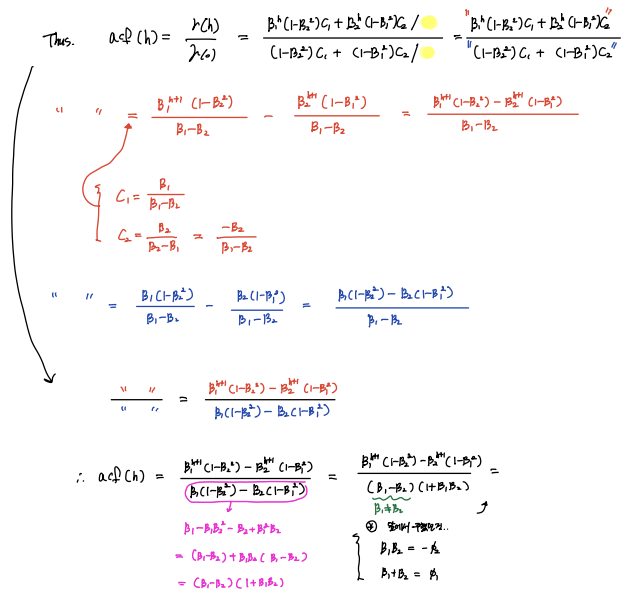 Thus. acf(h) = r(h)/r(0) = B₁ʰ(1-B₂²)C₁ + B₂ʰ(1-B₁²)C₂/ / (1-B₂²)C₁ + (1-B₁²)C₂/ = "B₁ʰ(1-B₂²)C₁ + B₂ʰ(1-B₁²)C₂" / "(1-B₂²)C₁ + (1-B₁²)C₂"
" " = B₁ʰ⁺¹(1-B₂²) / B₁-B₂ - B₂ʰ⁺¹(1-B₁²) / B₁-B₂ = B₁ʰ⁺¹(1-B₂²) - B₂ʰ⁺¹(1-B₁²) / B₁-B₂
C₁ = B₁ / B₁-B₂
C₂ = B₂ / B₂-B₁ = -B₂ / B₁-B₂
" " = B₁(1-B₂²) / B₁-B₂ - B₂(1-B₁²) / B₁-B₂ = B₁(1-B₂²) - B₂(1-B₁²) / B₁-B₂
" " / " " = B₁ʰ⁺¹(1-B₂²) - B₂ʰ⁺¹(1-B₁²) / B₁(1-B₂²) - B₂(1-B₁²)
∴ acf(h) = B₁ʰ⁺¹(1-B₂²) - B₂ʰ⁺¹(1-B₁²) / B₁(1-B₂²) - B₂(1-B₁²) = B₁ʰ⁺¹(1-B₂²) - B₂ʰ⁺¹(1-B₁²) / (B₁-B₂)(1+B₁B₂) =
B₁≠B₂
B₁-B₁B₂² - B₂+B₁²B₂
= (B₁-B₂) + B₁B₂(B₁-B₂)
= (B₁-B₂)(1+B₁B₂)
B₁B₂ = -ϕ₂
B₁+B₂ = ϕ₁